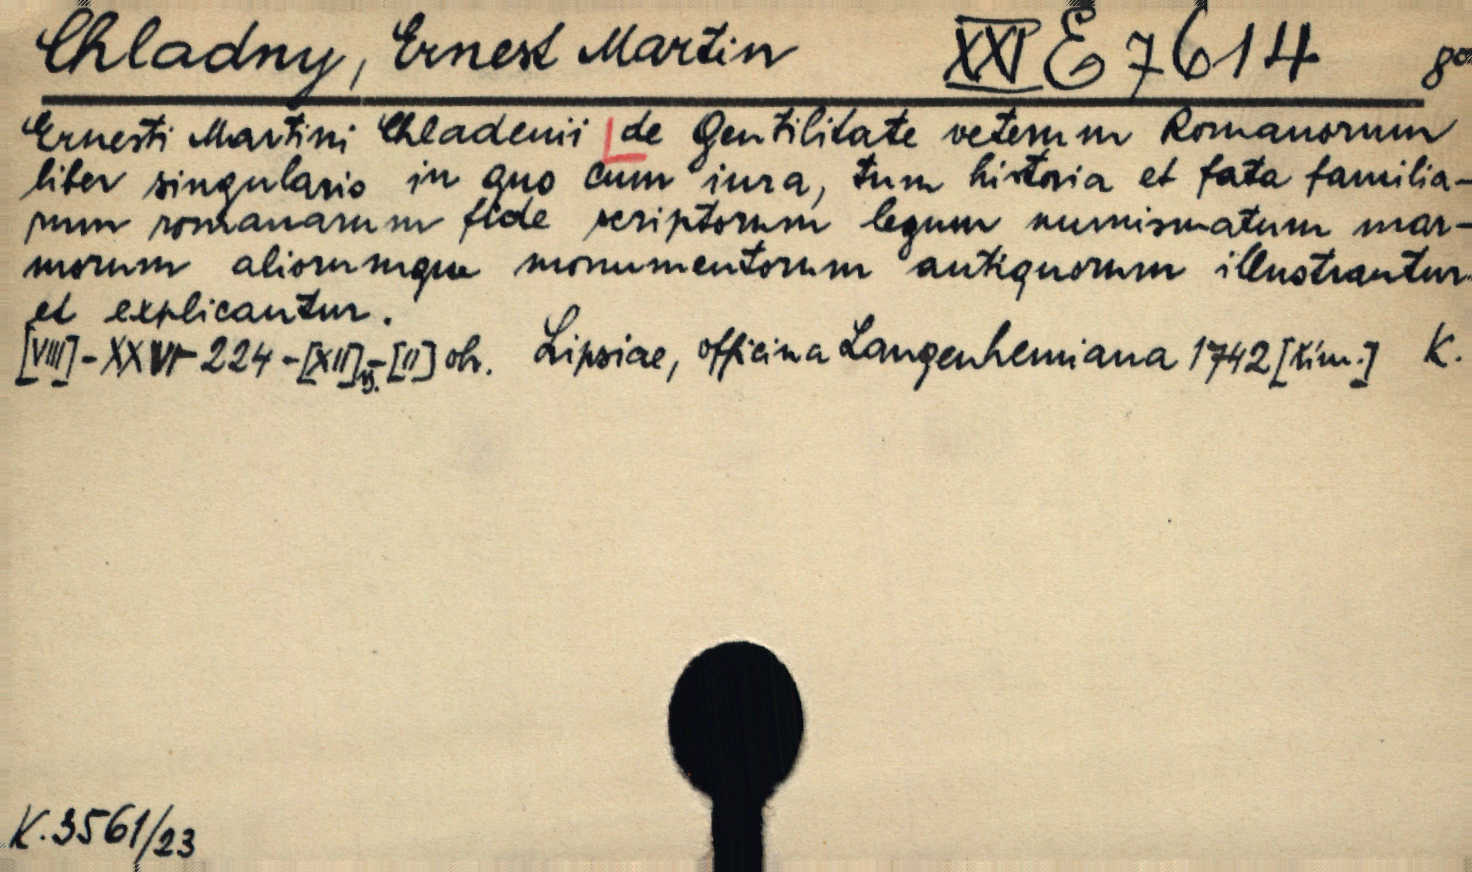 Chladny, Ernest Martin XXI E 7614 8°
Ernesti Martini Chladenii de Gentilitate veterum Romanorum
liber singularis in quo cum iura, tum historia et fata familia-
rum romanarum fide scriptorum legum numismatum mar-
morum aliorumque monumentorum antiquorum illustrantur
et explicantur.
[VIII]-XXVI-224-[XII]-[II] Lipsiae, officina Langenhemiana 1742 K.
K.3561/23